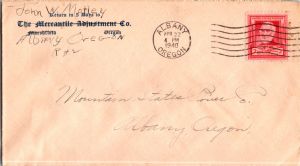 Return in 5 Days to
John W Motley
The Mercantile Adjustment Co.
Albany Oregon
Oregon
ALBANY
APR 22
4 PM
1940
OREGON
Mountain States Power Co
Albany Oregon